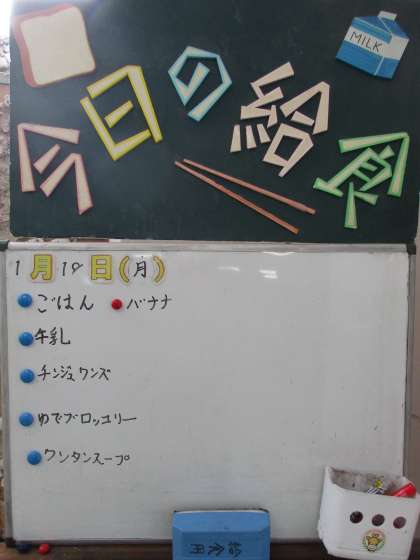 今日の給食
MILK
1月19日(月)
ごはん バナナ
牛乳
チンジャワンズ
ゆでブロッコリー
ワンタンスープ